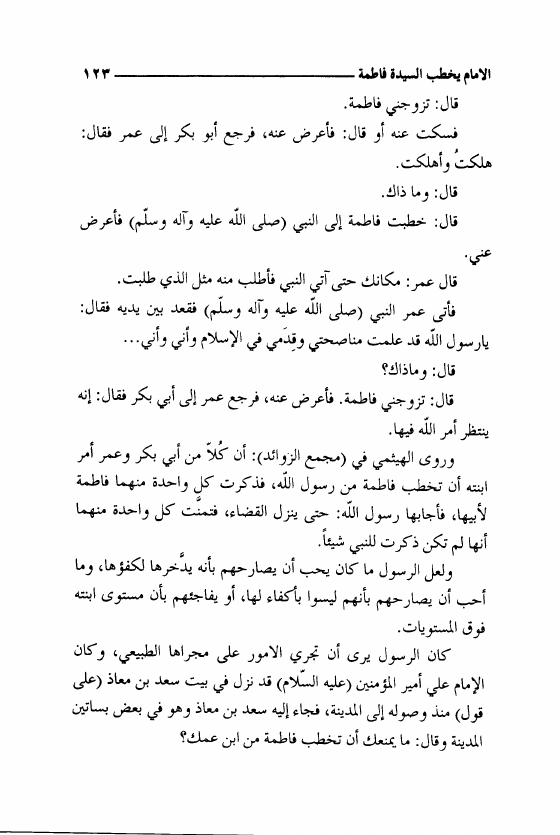 الامام يخطب السيدة فاطمة ــــــــــــــــــــــــــــــــ ١٢٣
قال: تزوجني فاطمة.
فسكت عنه أو قال: فأعرض عنه، فرجع أبو بكر إلى عمر فقال:
هلكتُ وأهلكت.
قال: وما ذاك.
قال: خطبت فاطمة إلى النبي (صلى اللّه عليه وآله وسلّم) فأعرض
عني.
قال عمر: مكانك حتى آتي النبي فأطلب منه مثل الذي طلبت.
فأتى عمر النبي (صلى اللّه عليه وآله وسلّم) فقعد بين يديه فقال:
يارسول اللّه قد علمت مناصحتي وقِدَمي في الإسلام وأني وأني...
قال: وماذاك؟
قال: تزوجني فاطمة. فأعرض عنه، فرجع عمر إلى أبي بكر فقال: إنه
ينتظر أمر اللّه فيها.
وروى الهيثمي في (مجمع الزوائد): أن كُلاّ من أبي بكر وعمر أمر
ابنته أن تخطب فاطمة من رسول اللّه، فذكرت كل واحدة منهما فاطمة
لأبيها، فأجابها رسول اللّه: حتى ينزل القضاء، فتمنَّت كل واحدة منهما
أنها لم تكن ذكرت للنبي شيئاً.
ولعل الرسول ما كان يحب أن يصارحهم بأنه يدَّخرها لكفؤها، وما
أحب أن يصارحهم بأنهم ليسوا بأكفاء لها، أو يفاجئهم بأن مستوى ابنته
فوق المستويات.
كان الرسول يرى أن تجري الامور على مجراها الطبيعي، وكان
الإمام علي أمير المؤمنين (عليه السّلام) قد نزل في بيت سعد بن معاذ (على
قول) منذ وصوله إلى المدينة، فجاء إليه سعد بن معاذ وهو في بعض بساتين
المدينة وقال: ما يمنعك أن تخطب فاطمة من ابن عمك؟